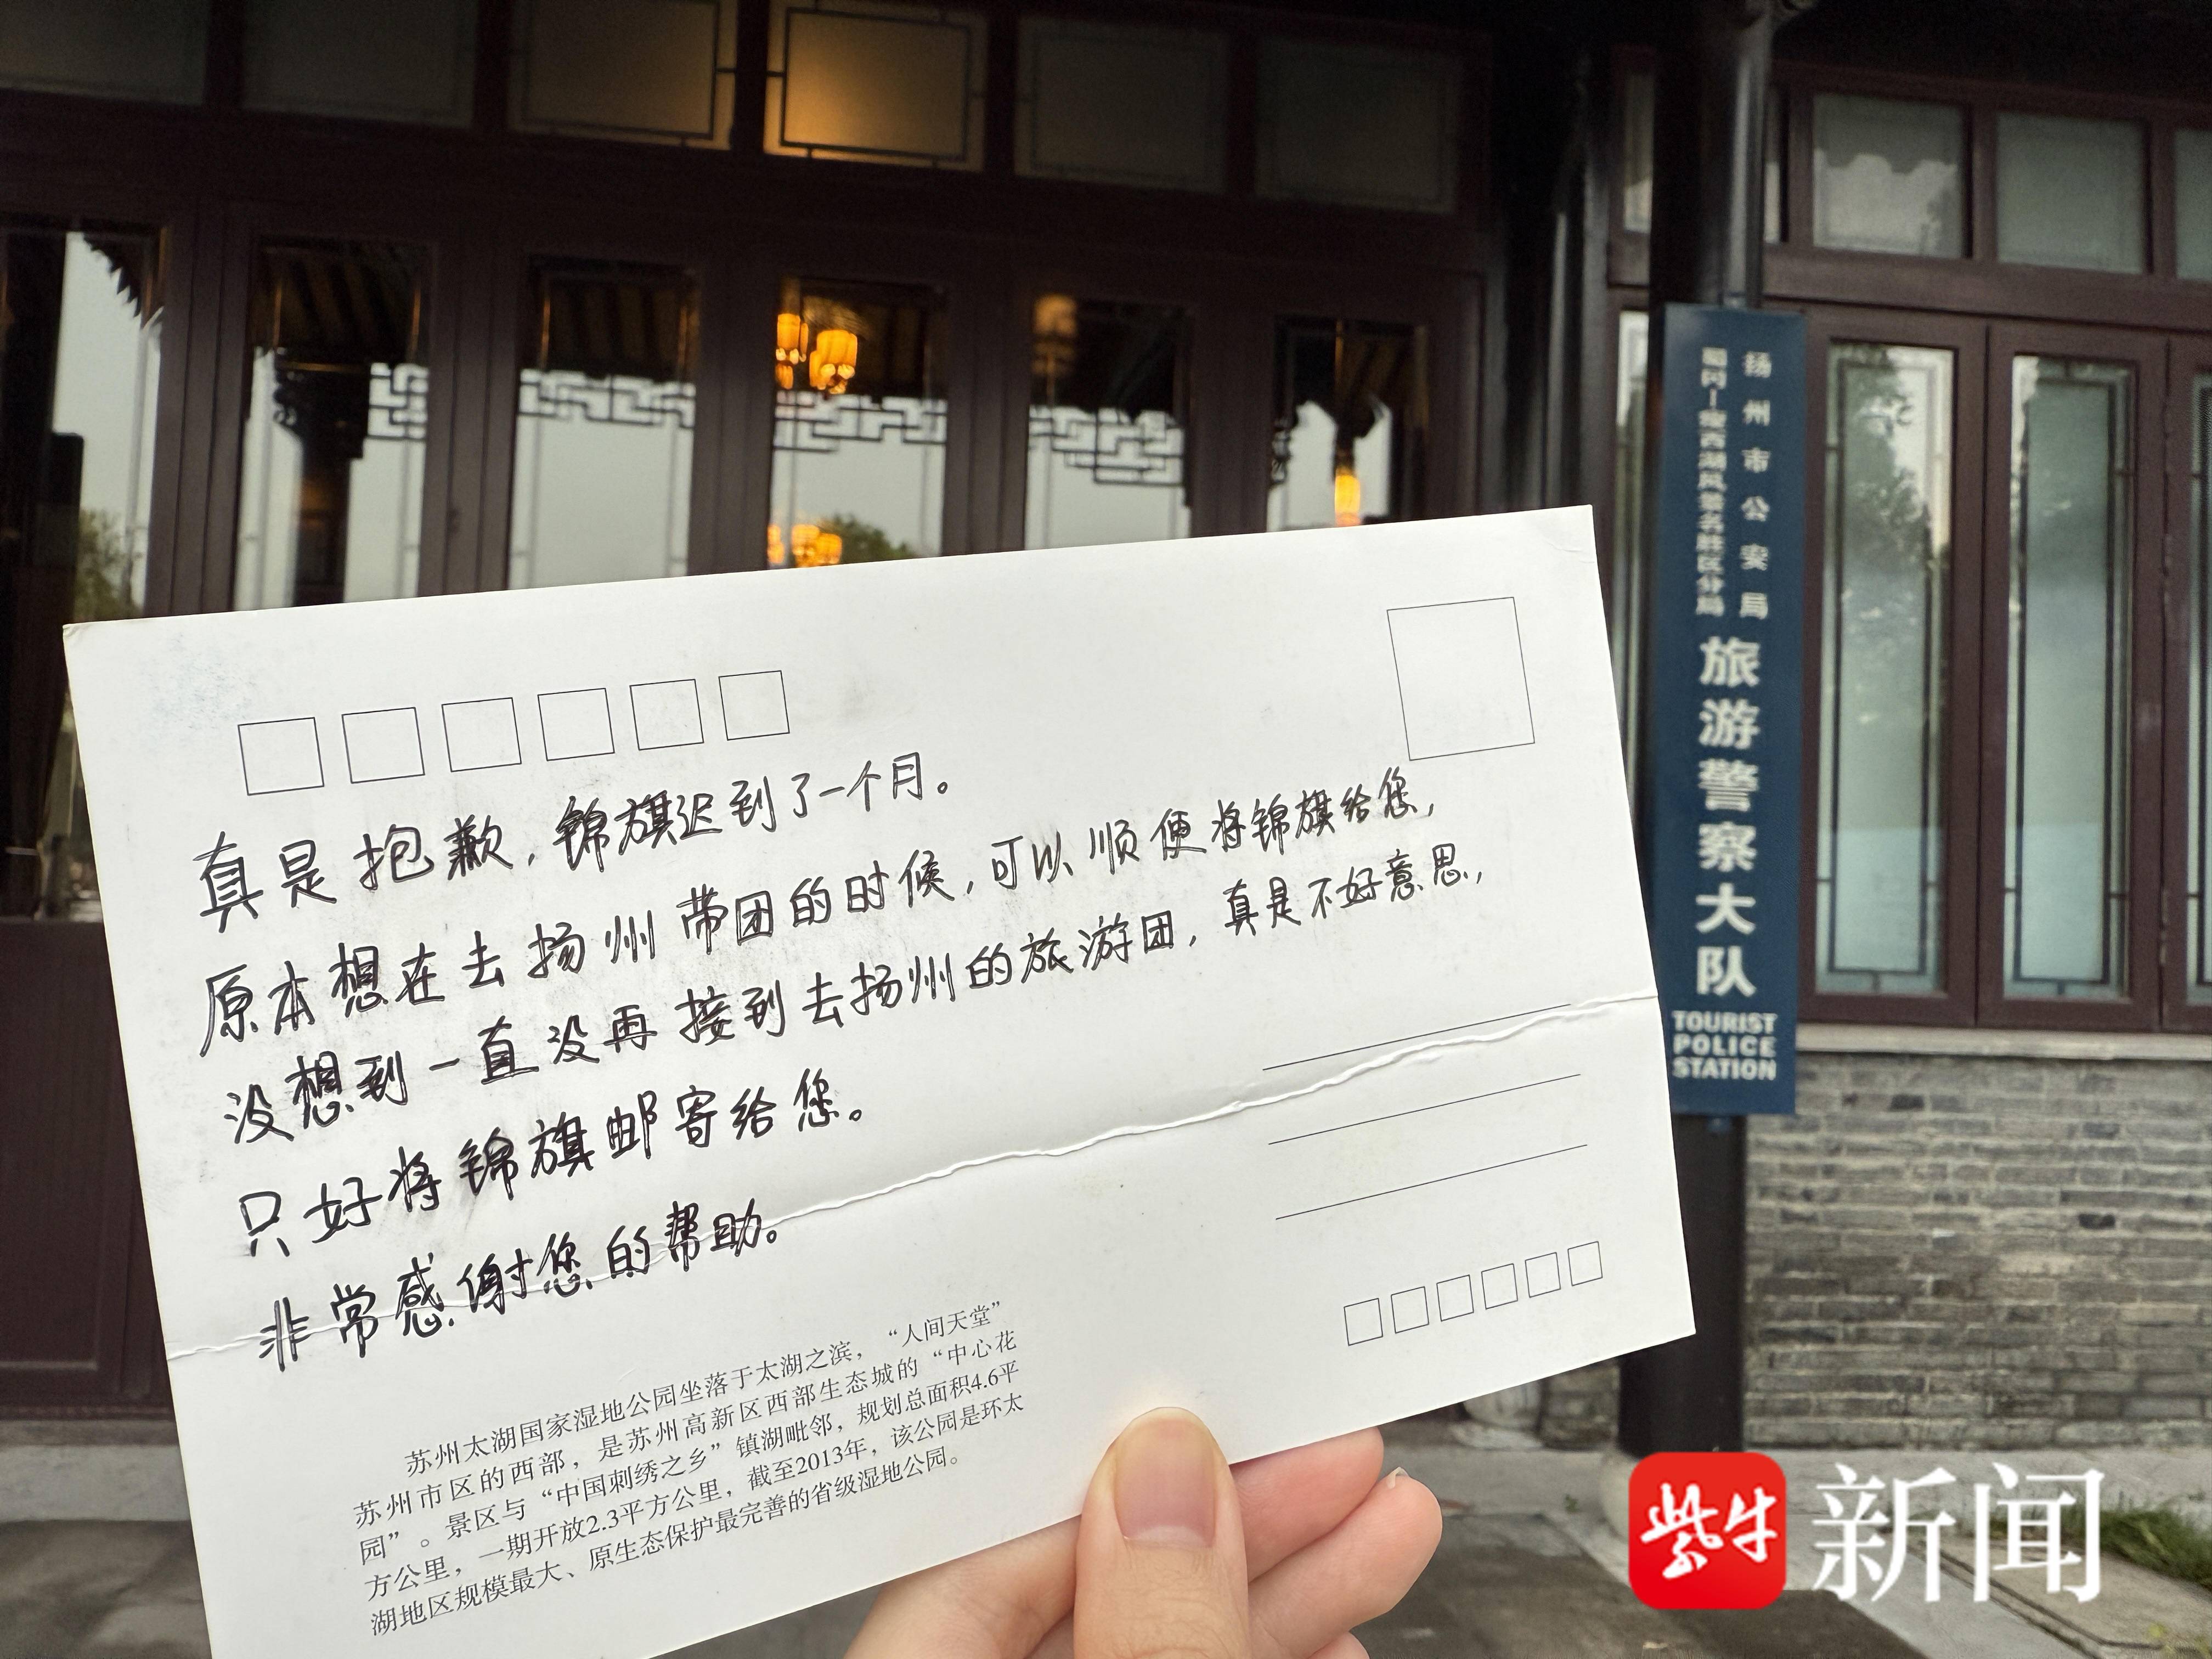 真是抱歉，锦旗迟到了一个月。
原本想在去扬州带团的时候，可以顺便将锦旗给您，
没想到一直没再接到去扬州的旅游团，真是不好意思，
只好将锦旗邮寄给您。
非常感谢您的帮助。
苏州太湖国家湿地公园坐落于太湖之滨，“人间天堂”
苏州市区的西部，是苏州高新区西部生态城的“中心花
园”。景区与“中国刺绣之乡”镇湖毗邻，规划总面积4.6平
方公里，一期开放2.3平方公里，截至2013年，该公园是环太
湖地区规模最大、原生态保护最完善的省级湿地公园。
扬州市公安局
蜀冈-瘦西湖风景名胜区分局
旅游警察大队
TOURIST
POLICE
STATION
紫牛新闻